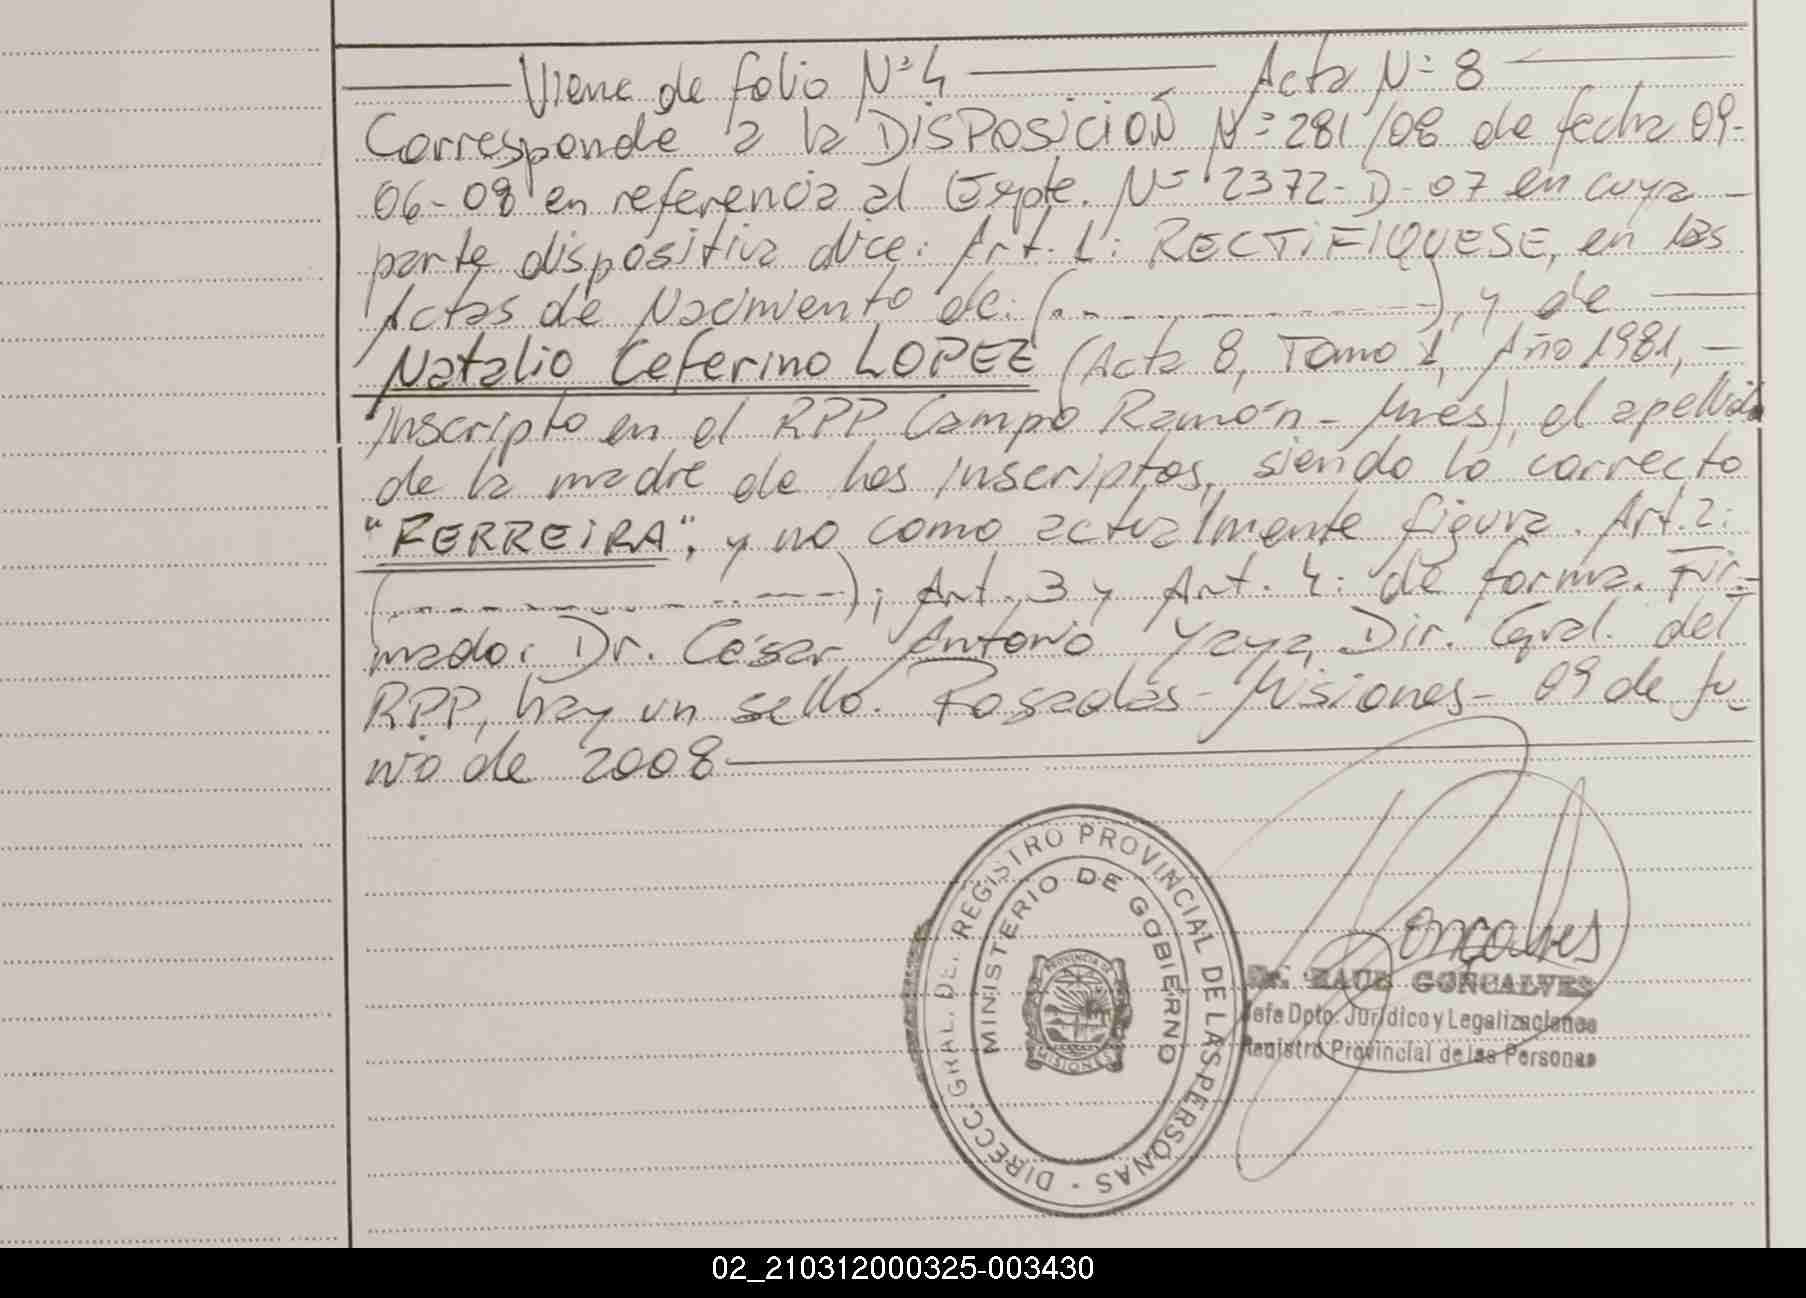 Viene de folio Nº 4 Acta Nº 8
Corresponde a la DISPOSICIÓN Nº 281/08 de fecha 09-
06-08 en referencia al Expte. Nº 2372-D-07 en cuya
parte dispositiva dice: Art. 1: RECTIFIQUESE, en las
Actas de Nacimiento de: (- - - - - - - - - - - -), y de
Natalio Ceferino LOPEZ (Acta 8, Tomo 1, Año 1981,
inscripto en el RPP Campo Ramón - Mnes), el apellido
de la madre de los inscriptos, siendo lo correcto
"FERREIRA", y no como actualmente figura. Art. 2:
(- - - - - - - - - - - -); Art. 3 y Art. 4: de forma. Fir-
mado: Dr. César Antonio Yaya, Dir. Gral. del
RPP, hay un sello. Posadas - Misiones - 09 de Ju-
nio de 2008
DIRECC. GRAL. DEL REGISTRO PROVINCIAL DE LAS PERSONAS -
MINISTERIO DE GOBIERNO
PROVINCIA DE
MISIONES
Goncalves
Dr. RAUL GONCALVES
Jefe Dpto. Jurídico y Legalizaciones
Registro Provincial de las Personas
02_210312000325-003430